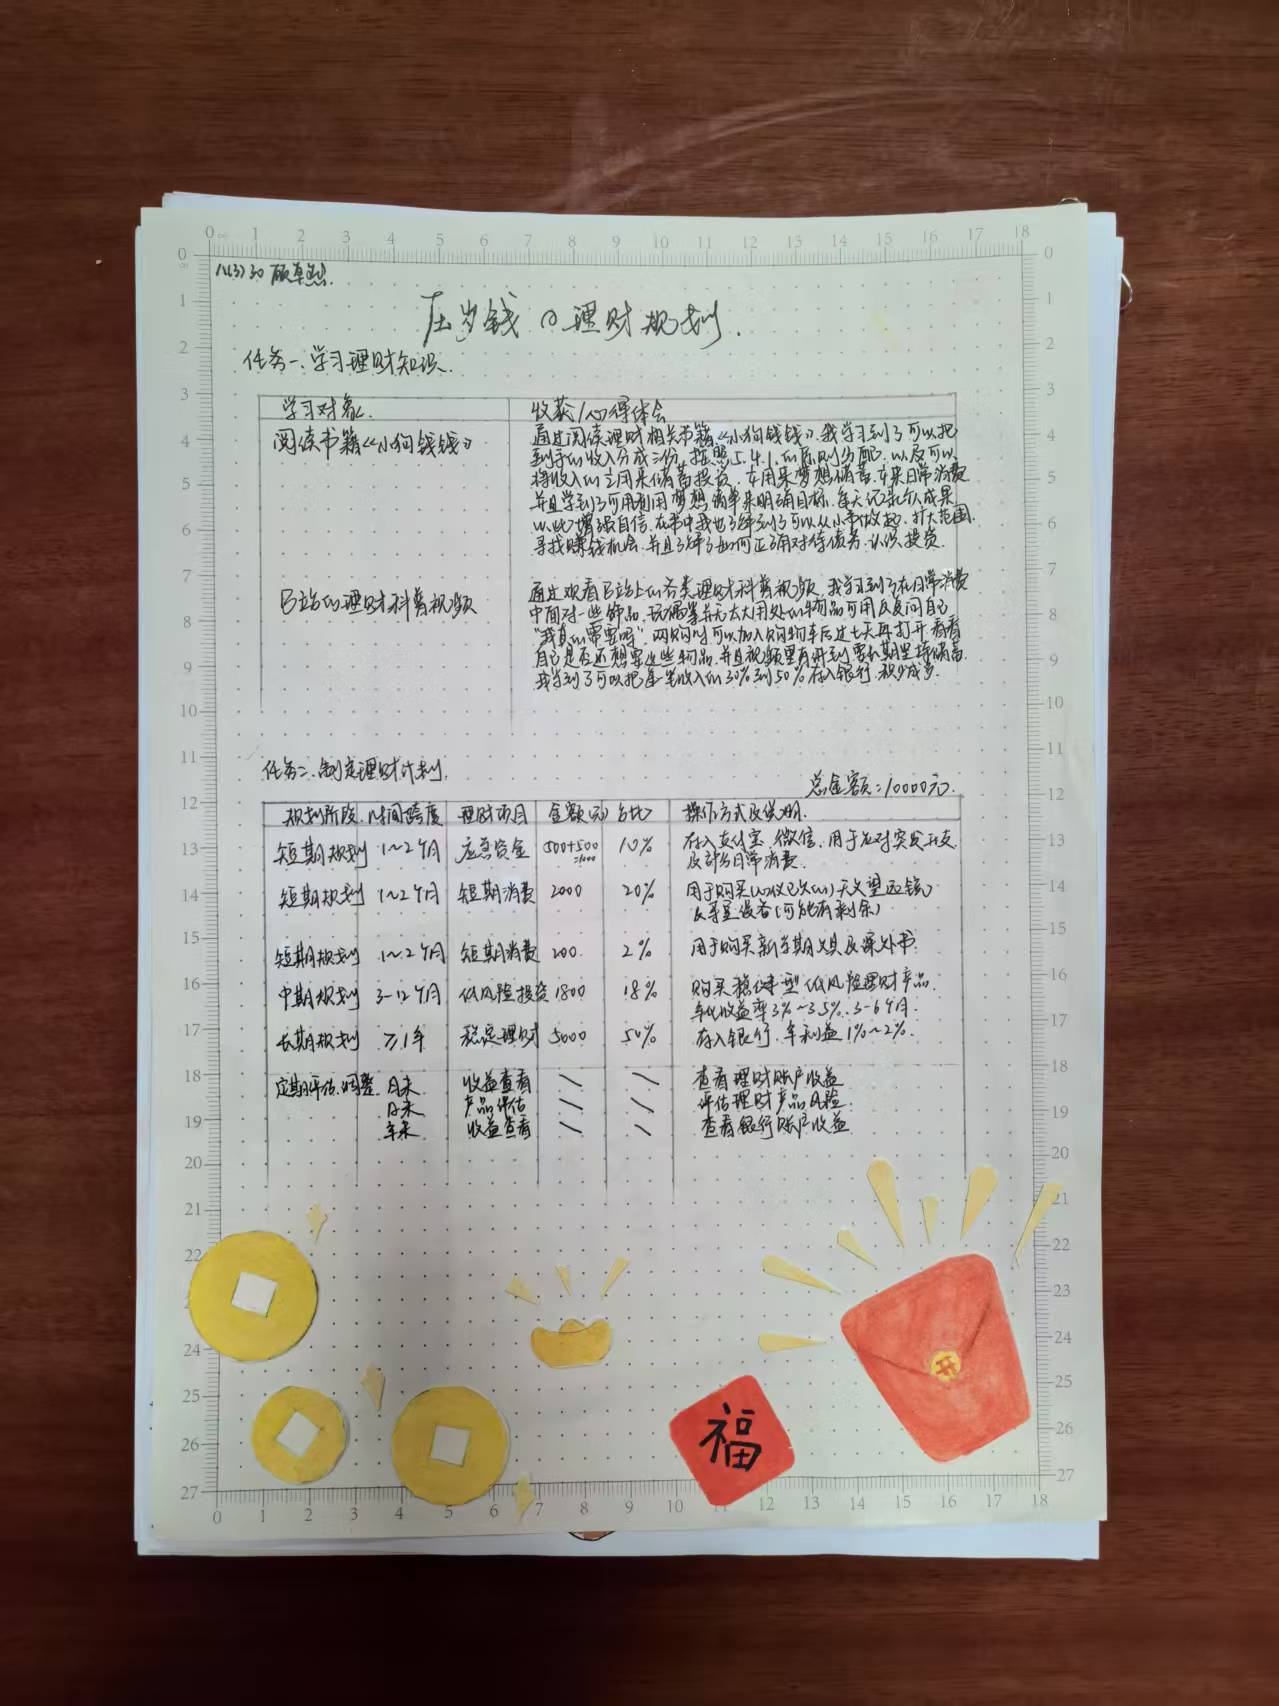 八(3) 30
压岁钱の理财规划.
任务一.学习理财知识.
学习对象. 收获/心得体会
阅读书籍《小狗钱钱》
通过阅读理财相关书籍《小狗钱钱》.我学习到了可以把
到手的收入分成三份,按照5.4.1.的原则分配.以及可以
将收入的 用来储蓄投资, 用来梦想储蓄, 来日常消费
并且学到了可用 用梦想清单来明确目标.每天记录个人成果
以此增强自信.在书中我也了解到了可以从小事做起.扩大范围.
寻找赚钱机会.并且了解了如何正确对待债务.认识投资.
B站的理财科普视频
通过观看B站上的各类理财科普视频,我学习到了在日常消费
中面对一些饰品、玩偶等并无太大用处的物品可用反复问自己
“我真的需要吗”.网购时可以加入购物车后过七天再打开看看
自己是否还想要这些物品.并且视频里有讲到要长期坚持储蓄.
我学到了可以把每笔收入的30%到50%存入银行.积少成多.
任务二.制定理财计划.
总金额:10000元.
规划阶段. 时间跨度 理财项目 金额(元) 占比 操作方式及说明.
短期规划 1~2个月 应急资金 500+500=1000 10% 存入支付宝、微信.用于应对突发开支
及部分日常消费.
短期规划 1~2个月 短期消费 2000 20% 用于购买(心仪已久的)天文望远镜
及寻星设备(可能有剩余)
短期规划 1~2个月 短期消费 200. 2% 用于购买新学期文具及课外书.
中期规划 3-12个月 低风险投资 1800 18% 购买稳健型低风险理财产品.
年化收益率3%~3.5%.3-6个月.
长期规划 ≥1年 稳定理财 5000 50% 存入银行.年利益1%~2%.
定期评估、调整. 月末 收益查看 \ \ 查看理财账户收益
月末 产品评估 \ \ 评估理财产品风险.
年末 收益查看 \ \ 查看银行账户收益
开
福